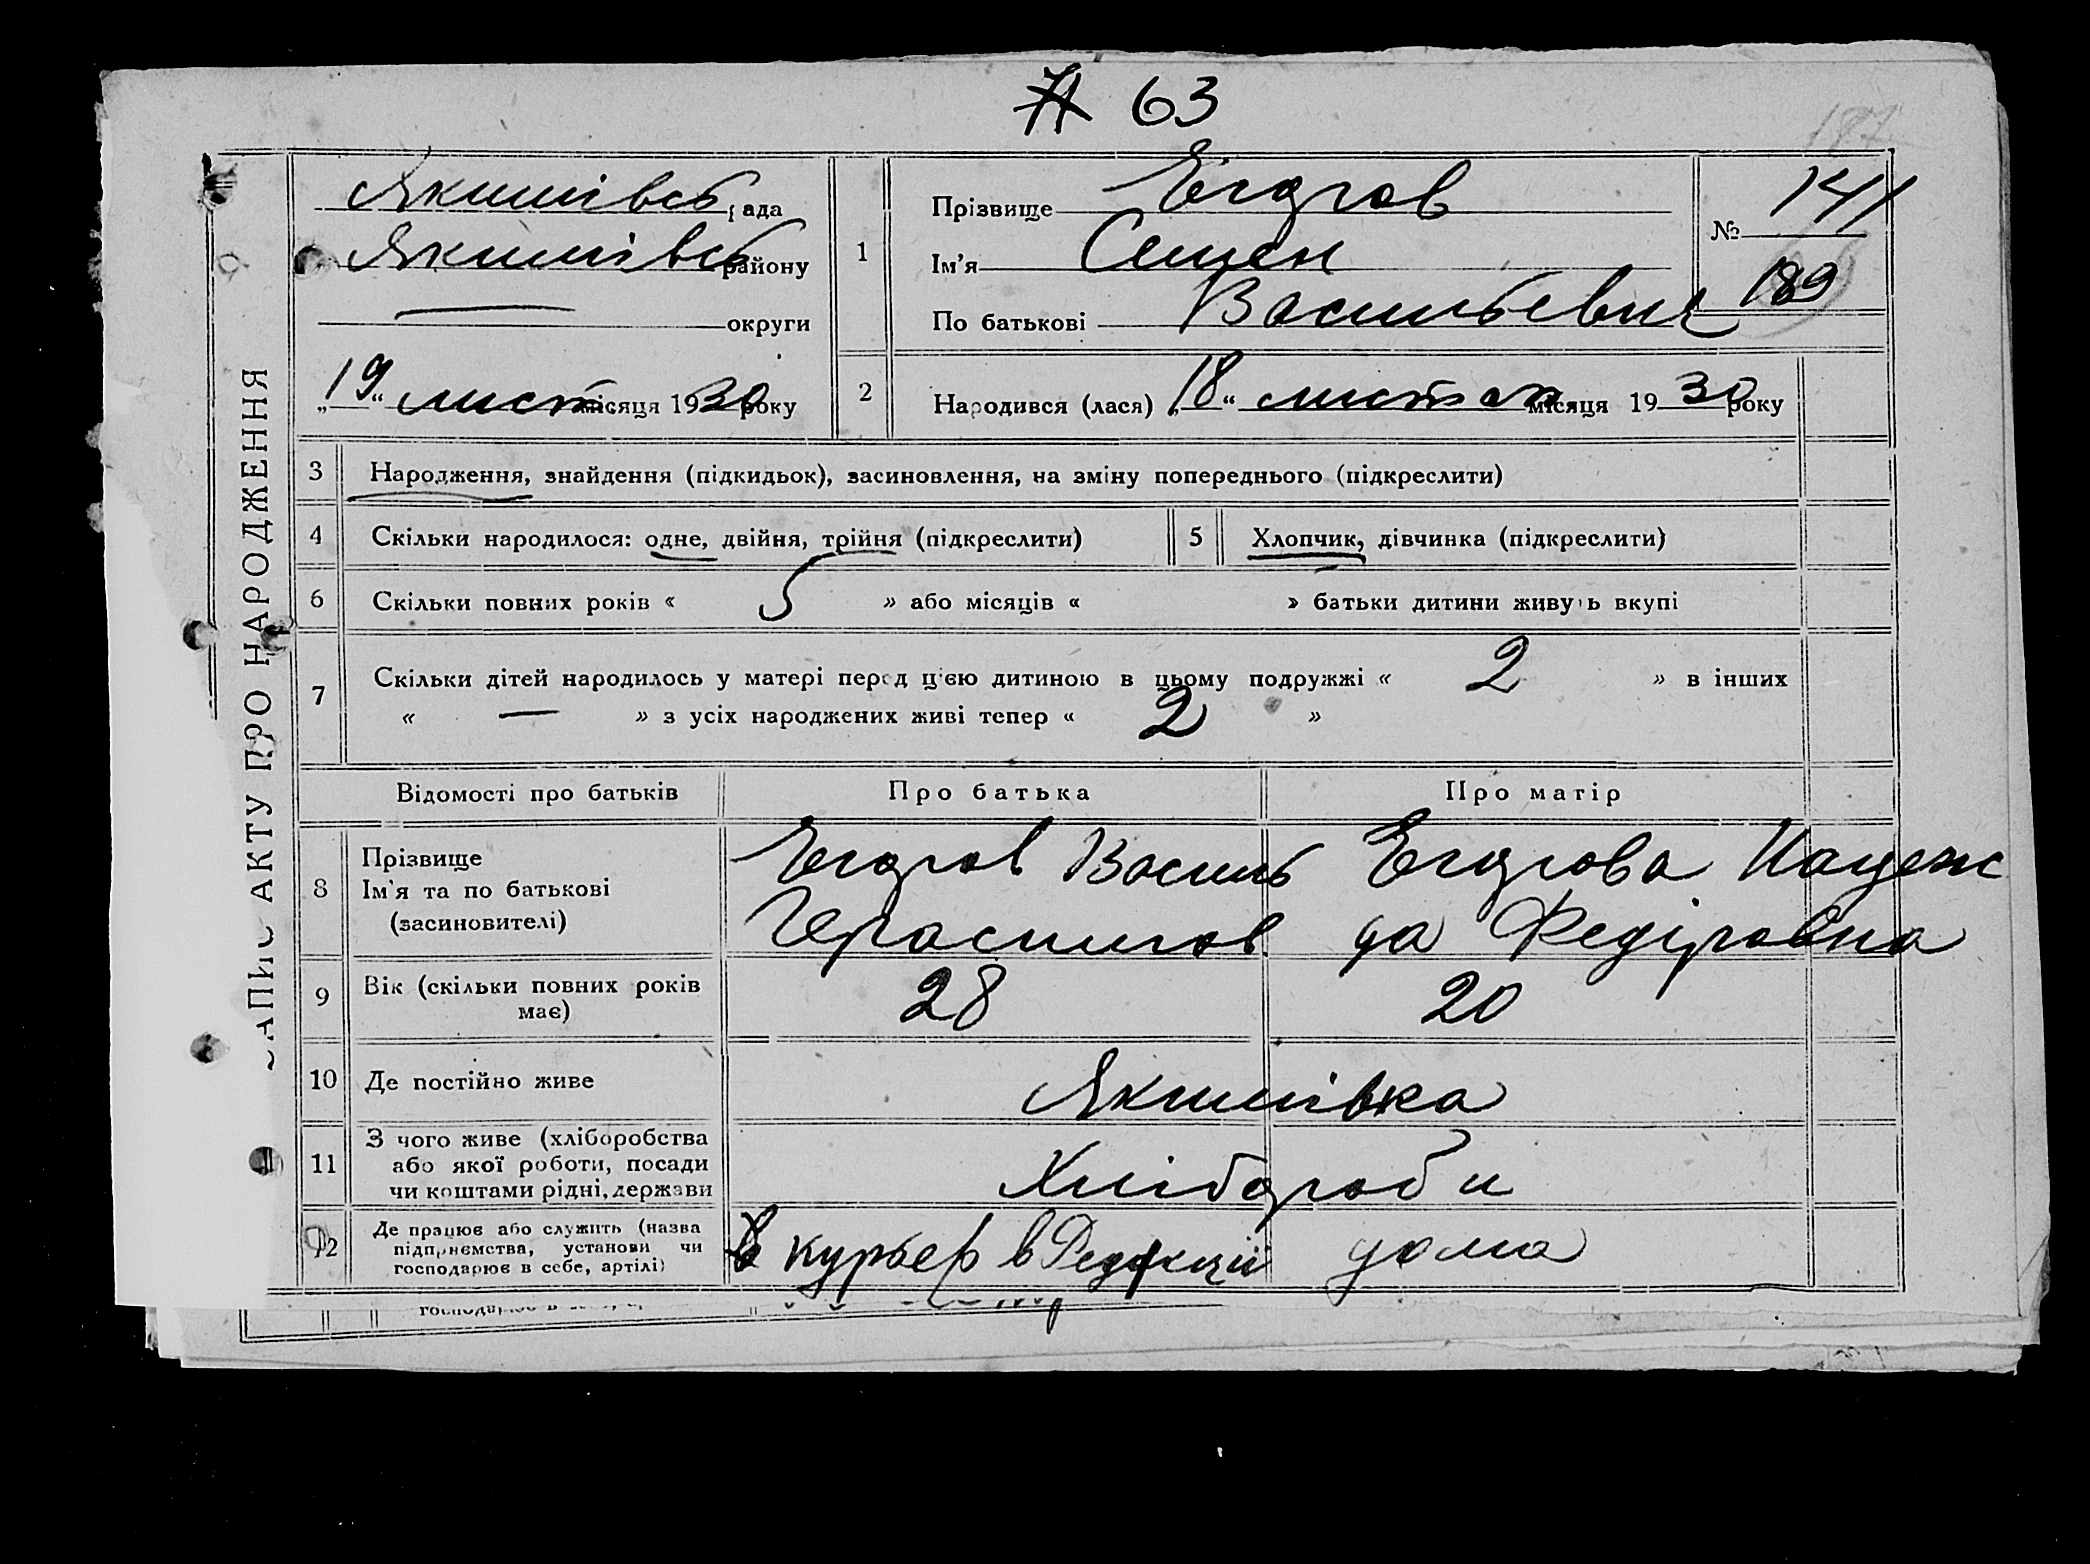 63
Якимівсь рада
Якимівсь району
округи
„19“ лист місяця 1930 року
1
Прізвище Егоров
Ім'я Семен
По батькові Васильевич
№ 141
189
2
Народився (лася) „18“ листоп місяця 1930 року
ЗАПИС АКТУ ПРО НАРОДЖЕННЯ
3 Народження, знайдення (підкидьок), засиновлення, на зміну попереднього (підкреслити)
4 Скільки народилося: одне, двійня, трійня (підкреслити) 5 Хлопчик, дівчинка (підкреслити)
6 Скільки повних років « 5 » або місяців « » батьки дитини живуть вкупі
7 Скільки дітей народилось у матері перед цією дитиною в цьому подружжі « 2 » в інших
« — » з усіх народжених живі тепер « 2 »
Відомості про батьків Про батька Про матір
8 Прізвище
Ім'я та по батькові
(засиновителі)
Егоров Василь
Герасимов
Егорова Надеж
да Федіровна
9 Вік (скільки повних років
має)
28 20
10 Де постійно живе Якимівка
11 З чого живе (хліборобства
або якої роботи, посади
чи коштами рідні, держави
Хлібороби
12 Де працює або служить (назва
підприємства, установи чи
господарює в себе, артілі)
курьер в Редакції дома